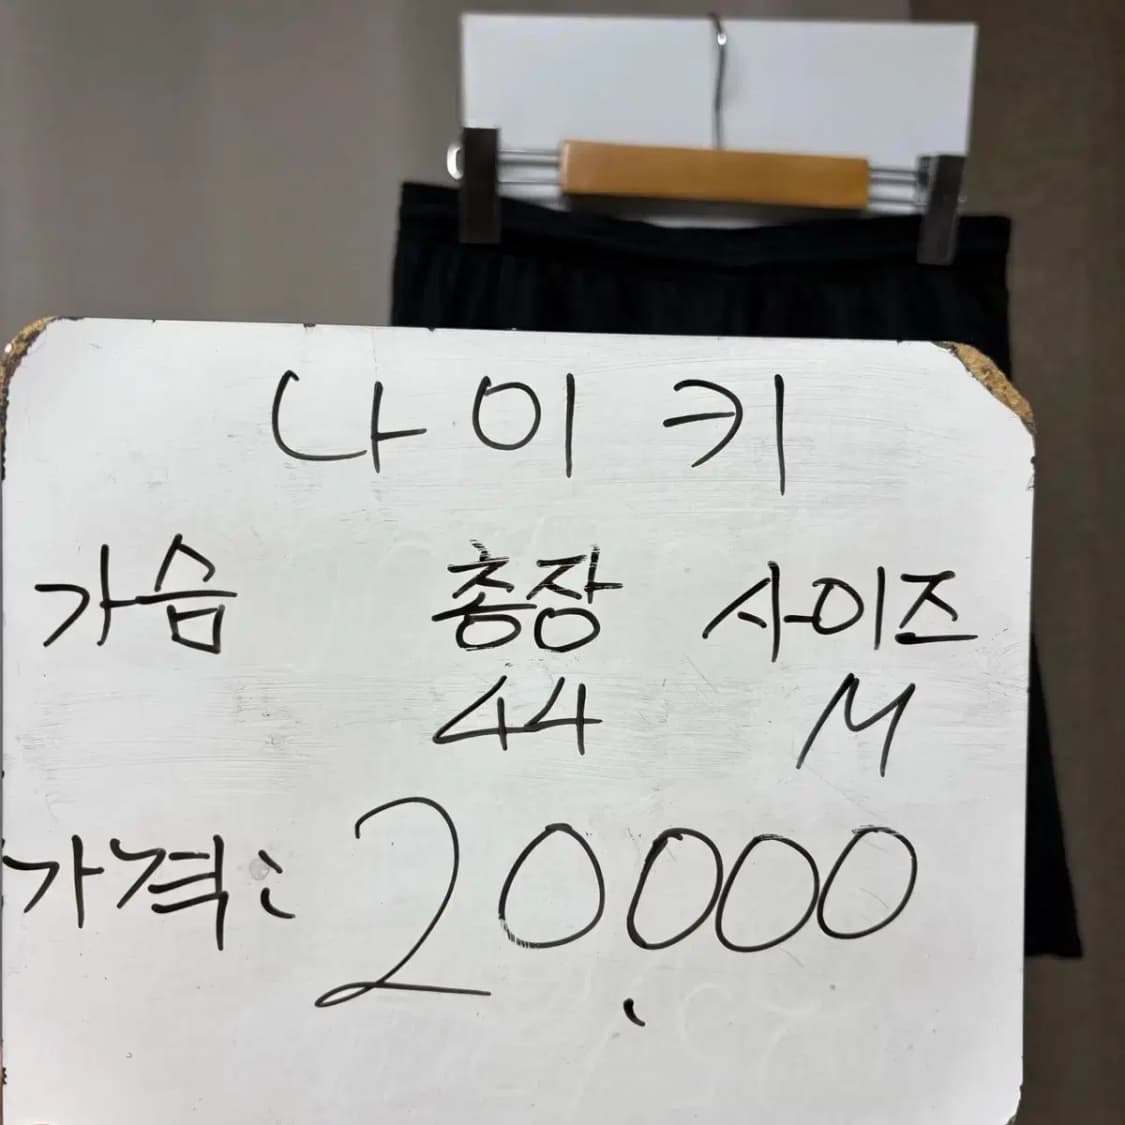 나이키
가슴 총장 사이즈
44 M
가격: 20,000